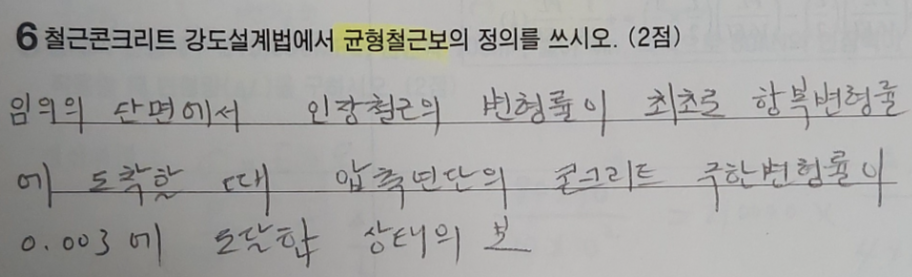 6 철근콘크리트 강도설계법에서 균형철근보의 정의를 쓰시오. (2점)
임의의 단면에서 인장철근의 변형률이 최초로 항복변형률
에 도착할 때 압축연단의 콘크리트 극한변형률이
0.003에 도달한 상태의 보